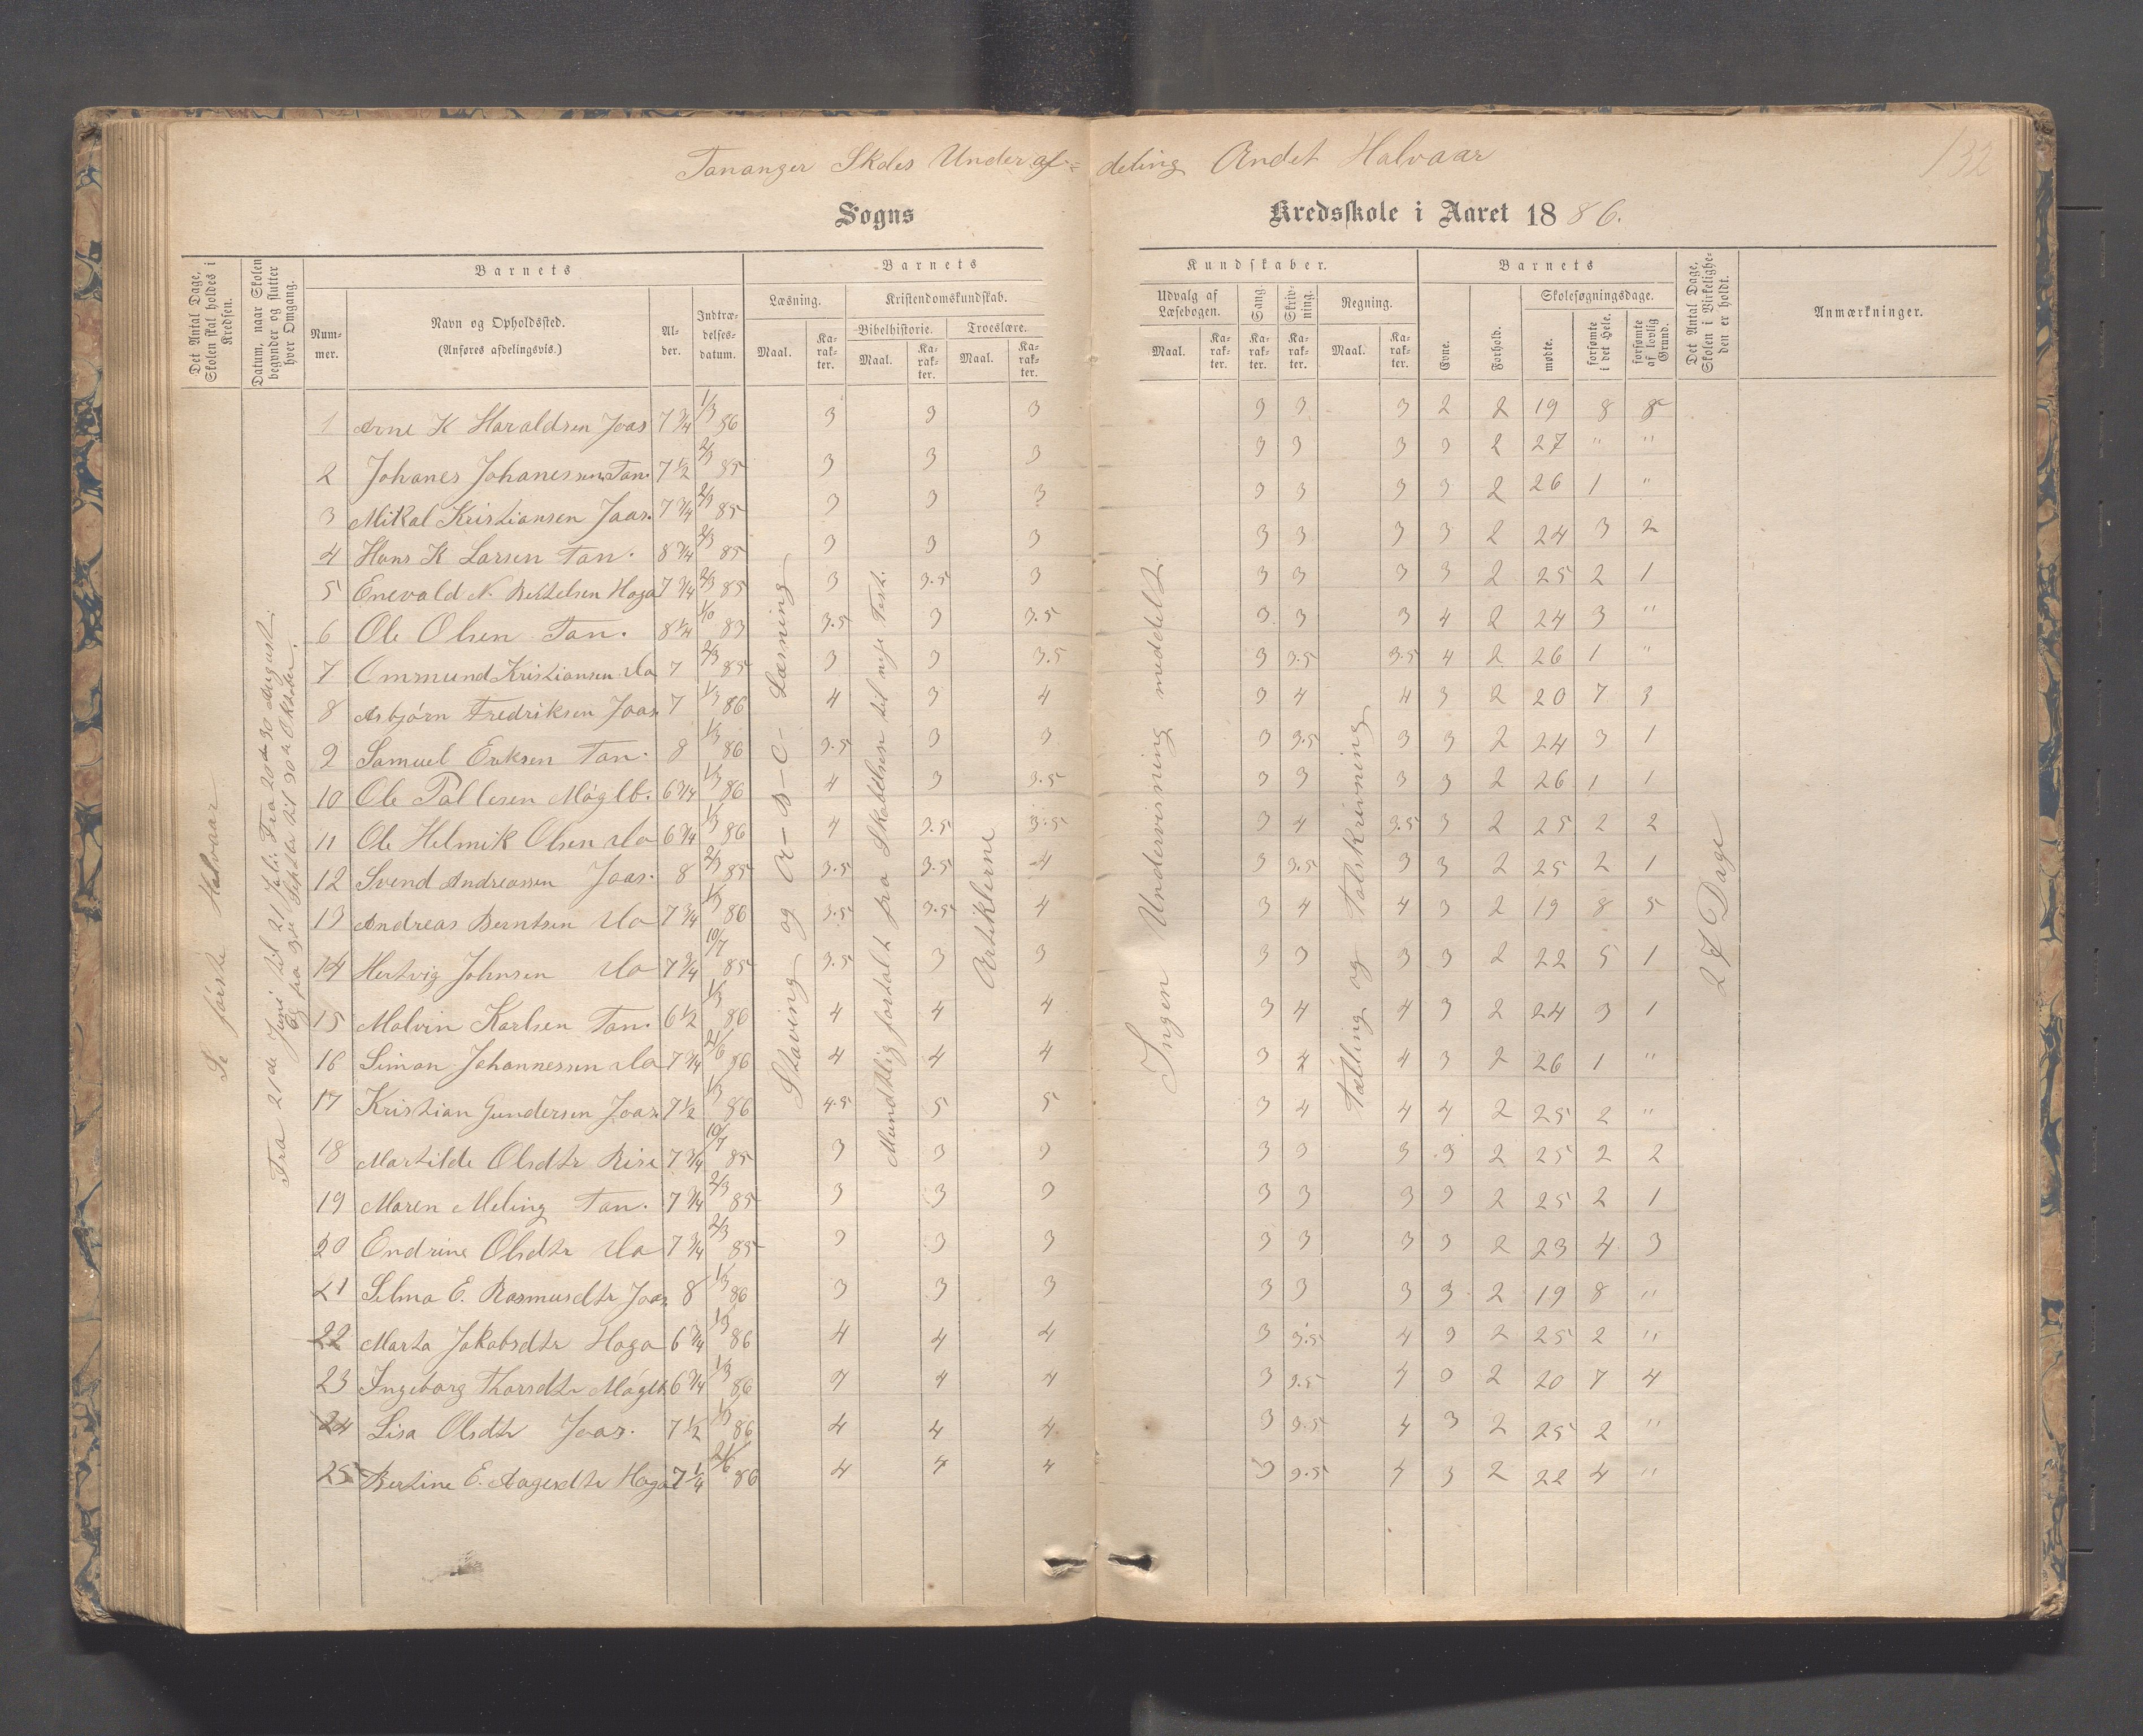 Tananger Skoles Underaf= deling Andet Halvaar
132
Sogns Kredsskole i Aaret 1886.
Det Antal Dage, Skolen skal holdes i Kredsen.
Datum, naar Skolen begynder og slutter hver Omgang.
Barnets
Nummer.
Navn og Opholdssted.
(Anføres afdelingsvis.)
Alder.
Indtrædelsesdatum.
Barnets Kundskaber.
Læsning.
Maal.
Karakter.
Kristendomskundskab.
Bibelhistorie.
Maal.
Karakter.
Troeslære.
Maal.
Karakter.
Udvalg af Læsebogen.
Maal.
Karakter.
Sang.
Karakter.
Skrivning.
Karakter.
Regning.
Maal.
Karakter.
Barnets
Evne.
Forhold.
Skolesøgningsdage.
mødte.
forsømte i det Hele.
forsømte af lovlig Grund.
Det Antal Dage, Skolen i Virkeligheden er holdt.
Anmærkninger.
Se første Halvaar
Fra 21de Juni til 21 Juli. Fra 20de 30 August.
Og fra 3die Septbr til 30te Oktober.
Staving og A-B-C-Læsning
Mundtlig fortalt fra Skabelsen til nye Test.
Artiklerne
Ingen Undervisning meddelt
Tælling og Talskrivning
27 Dage
1 Arne K Haraldsen Joas 7 3/4 1/3 86 3 3 3 3 3 3 2 2 19 8 8
2 Johanes Johanessen Tan. 7 1/2 2/3 85 3 3 3 3 3 3 3 2 27 " "
3 Mikal Kristiansen Jaas. 7 3/4 2/3 85 3 3 3 3 3 3 3 2 26 1 "
4 Hans K Larsen Tan. 8 3/4 2/3 85 3 3 3 3 3 3 3 2 24 3 2
5 Enevald N. Bertelsen Haga 7 3/4 2/3 85 3 3.5 3 3 3 3 3 2 25 2 1
6 Ole Olsen Tan. 8 1/4 1/10 83 3.5 3 3.5 3 3 3 4 2 24 3 "
7 Ommund Kristiansen do 7 2/3 85 3 3 3.5 3 3.5 3.5 4 2 26 1 "
8 Asbjørn Fredriksen Joas. 7 1/3 86 4 3 4 3 4 4 3 2 20 7 3
9 Samuel Eriksen Tan. 8 1/3 86 3.5 3 3 3 3.5 3 3 2 24 3 1
10 Ole Pallesen Møglb. 6 3/4 1/3 86 4 3 3.5 3 3 3 3 2 26 1 1
11 Ole Helmik Olsen do 6 3/4 1/3 86 4 3.5 3.5 3 4 3.5 3 2 25 2 2
12 Svend Andreassen Joas. 8 2/3 85 3.5 3.5 4 3 3.5 3 3 2 25 2 1
13 Andreas Berntsen do 7 3/4 1/3 86 3.5 3.5 4 3 4 4 3 2 19 8 5
14 Hertvig Johnsen do 7 3/4 10/7 85 3.5 3 3 3 3 3 3 2 22 5 1
15 Malvin Karlsen Tan. 6 1/2 1/3 86 4 4 4 3 4 4 3 2 24 3 1
16 Simon Johannessen do 7 3/4 21/6 86 4 4 4 3 4 4 3 2 26 1 "
17 Kristian Gundersen Joas. 7 1/2 1/3 86 4.5 5 5 3 4 4 4 2 25 2 "
18 Martilde Olsdtr Risa 7 3/4 10/7 85 3 3 3 3 3 3 3 2 25 2 2
19 Maren Meling Tan. 7 3/4 2/3 85 3 3 3 3 3 3 3 2 25 2 1
20 Endrine Olsdtr do 7 3/4 2/3 85 3 3 3 3 3 3 3 2 23 4 3
21 Selma E. Rasmusdtr Joas. 8 1/3 86 3 3 3 3 3 3 3 2 19 8 "
22 Marta Jakobsdtr Haga 6 3/4 1/3 86 4 4 4 3 3.5 4 3 2 25 2 "
23 Ingeborg Thorsdtr Møglb. 6 3/4 1/3 86 4 4 4 3 3.5 4 3 2 20 7 4
24 Lisa Olsdtr Joas. 7 1/2 1/3 86 4 4 4 3 3.5 4 3 2 25 2 "
25 Bertine E. Aagesdtr Haga 7 1/4 21/6 86 4 4 4 3 3.5 4 3 2 22 4 "